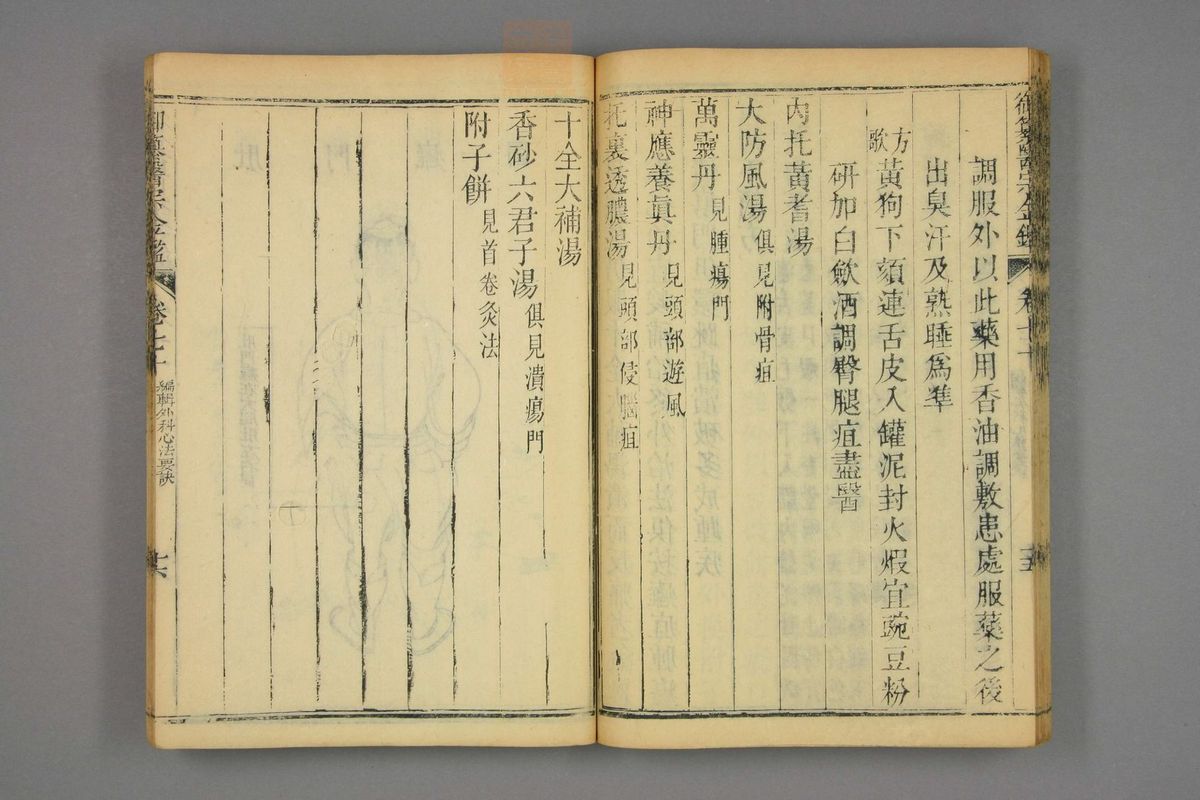 調服外以此藥用香油調敷患處服藥之後
出臭汗及熟睡爲準
方歌 黃狗下頦連舌皮入罐泥封火煆宜豌豆粉
研加白歛酒調臀腿疽盡醫
內托黃耆湯
大防風湯 俱見附骨疽
萬靈丹 見腫瘍門
神應養眞丹 見頭部遊風
托裏透膿湯 見頭部侵腦疽
十全大補湯
香砂六君子湯 俱見潰瘍門
附子餅 見首卷灸法
御纂醫宗金鑑
卷七十
編輯外科心法要訣
十六